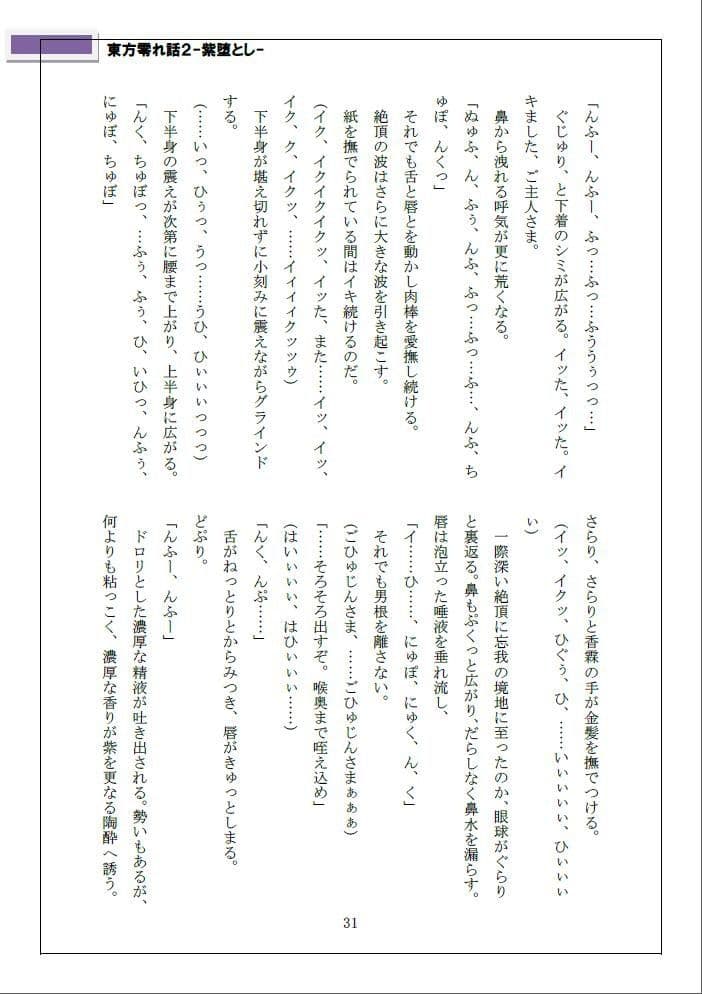 東方零れ話２-紫堕とし-
「んふー、んふー、ふっ…ふっ…ふううぅっっ…」
　ぐじゅり、と下着のシミが広がる。イッた、イッた。イ
キました、ご主人さま。
　鼻から洩れる呼気が更に荒くなる。
「ぬゅふ、ん、ふぅ、んふ、ふっ…ふっ…ふ…、んふ、ち
ゅぽ、んくっ」
　それでも舌と唇とを動かし肉棒を愛撫し続ける。
　絶頂の波はさらに大きな波を引き起こす。
　紙を撫でられている間はイキ続けるのだ。
（イク、イクイクイクッ、イッた、また……イッ、イッ、
イク、ク、イクッ、……イィィィクッッゥ）
　下半身が堪え切れずに小刻みに震えながらグラインド
する。
（……いっ、ひぅっ、うっ……うひ、ひぃぃぃっっっ）
　下半身の震えが次第に腰まで上がり、上半身に広がる。
「んく、ちゅぽっ、…ふぅ、ふぅ、ひ、いひっ、んふぅ、
にゅぽ、ちゅぽ」
さらり、さらりと香霖の手が金髪を撫でつける。
（イッ、イクッ、ひぐぅ、ひ、……いぃぃぃぃ、ひぃぃぃ
ぃ）
　一際深い絶頂に忘我の境地に至ったのか、眼球がぐらり
と裏返る。鼻もぷくっと広がり、だらしなく鼻水を漏らす。
唇は泡立った唾液を垂れ流し、
「イ……ひ……、にゅぽ、にゅく、ん、く」
　それでも男根を離さない。
（ごひゅじんさま、……ごひゅじんさまぁぁぁ）
「……そろそろ出すぞ。喉奥まで咥え込め」
（はいぃぃぃ、はひぃぃぃ……）
「んく、んぷ……」
　舌がねっとりとからみつき、唇がきゅっとしまる。
どぷり。
「んふー、んふー」
　ドロリとした濃厚な精液が吐き出される。勢いもあるが、
何よりも粘っこく、濃厚な香りが紫を更なる陶酔へ誘う。
31